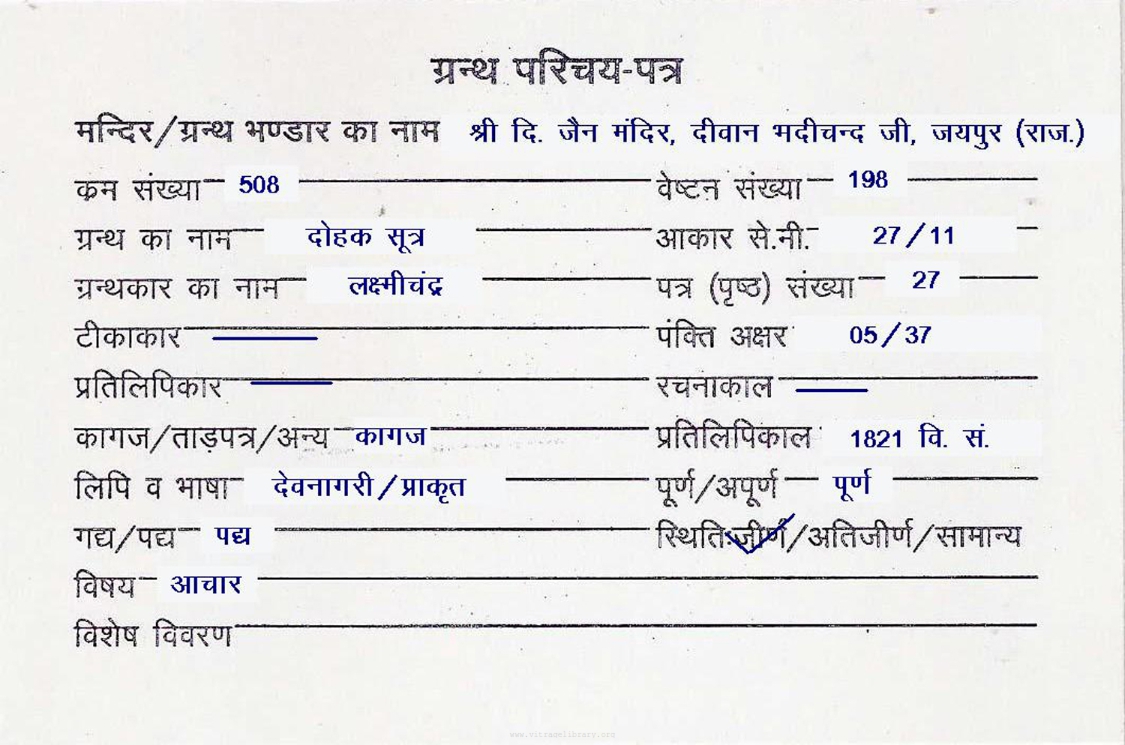 ग्रन्थ परिचय-पत्र
मन्दिर/ग्रन्थ भण्डार का नाम श्री दि. जैन मंदिर, दीवान भदीचन्द जी, जयपुर (राज.)
क्रम संख्या 508 वेष्टन संख्या 198
ग्रन्थ का नाम दोहक सूत्र आकार से.मी. 27/11
ग्रन्थकार का नाम लक्ष्मीचंद्र पत्र (पृष्ठ) संख्या 27
टीकाकार पंक्ति अक्षर 05/37
प्रतिलिपिकार रचनाकाल
कागज/ताड़पत्र/अन्य कागज प्रतिलिपिकाल 1821 वि. सं.
लिपि व भाषा देवनागरी/प्राकृत पूर्ण/अपूर्ण पूर्ण
गद्य/पद्य पद्य स्थिति:जीर्ण/अतिजीर्ण/सामान्य
विषय आचार
विशेष विवरण